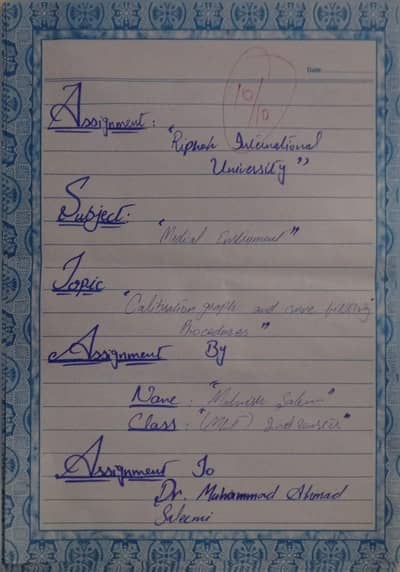 Date
10/10
Assignment : "Riphah International
University"
Subject:
"Medical
Topic
"Calibration graph and curve fitting
Procedures"
Assignment By
Name : "
Class : "(MLT) 2nd
Assignment To
Dr. Muhammad Ahmad
Saleemi